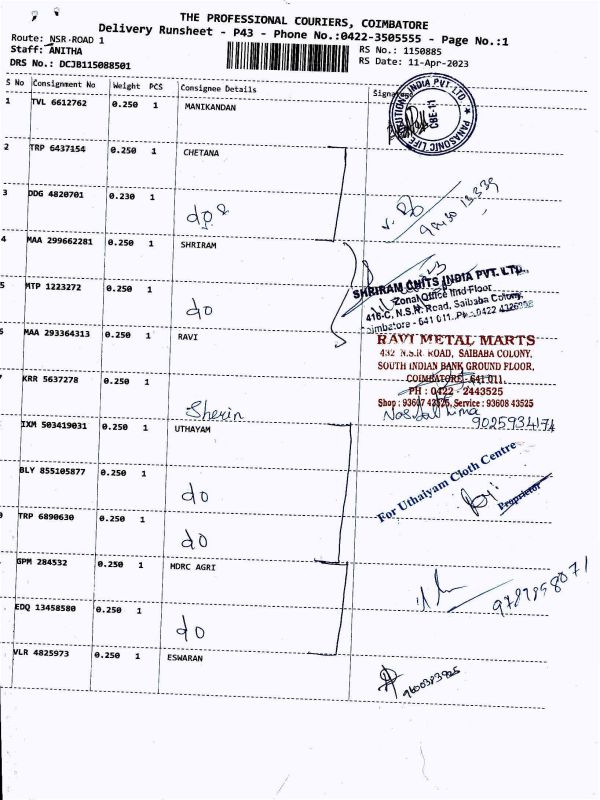 THE PROFESSIONAL COURIERS, COIMBATORE
Delivery Runsheet - P43 - Phone No.:0422-3505555 - Page No.:1
Route: NSR ROAD 1
RS No.: 1150885
Staff: ANITHA
RS Date: 11-Apr-2023
DRS No.: DCJB115088501
S No Consignment No Weight PCS Consignee Details
1 TVL 6612762 0.250 1 MANIKANDAN
PANASONIC LIFE INDIA PVT. LTD.
CBE-11
2 TRP 6437154 0.250 1 CHETANA
3 DDG 4820701 0.230 1
do
4 MAA 299662281 0.250 1 SHRIRAM
SHRIRAM CHITS INDIA PVT. LTD.,
Zonal Office IInd Floor
416-C, N.S.R. Road, Saibaba Colony,
Coimbatore - 641 011.
5 MTP 1223272 0.250 1
do
6 MAA 293364313 0.250 1 RAVI
RAVI METAL MARTS
432 N.S.R. ROAD, SAIBABA COLONY,
SOUTH INDIAN BANK GROUND FLOOR,
COIMBATORE - 641 011.
PH : 0422 - 2443525
Shop : 93607 43525, Service : 93608 43525
KRR 5637278 0.250 1
Sherin
9025934174
IXM 503419031 0.250 1 UTHAYAM
For Uthaiyam Cloth Centre
Proprietor
BLY 855105877 0.250 1
do
TRP 6890630 0.250 1
do
GPM 284532 0.250 1 HDRC AGRI
9787958071
EDQ 13458580 0.250 1
do
VLR 4825973 0.250 1 ESWARAN